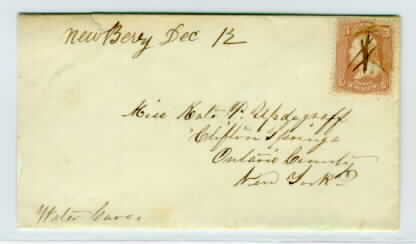 New Berry Dec 12
Miss Kate V. Updegraff
Clifton Springs
Ontario County
New York
Water Cure.